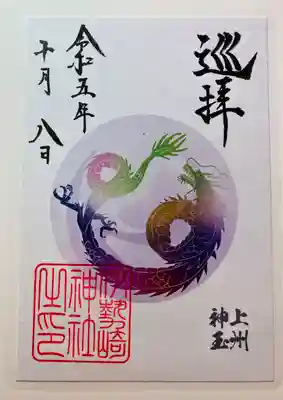 巡拝
令和五年
十月八日
上州
神玉
伊勢崎
神社
之印